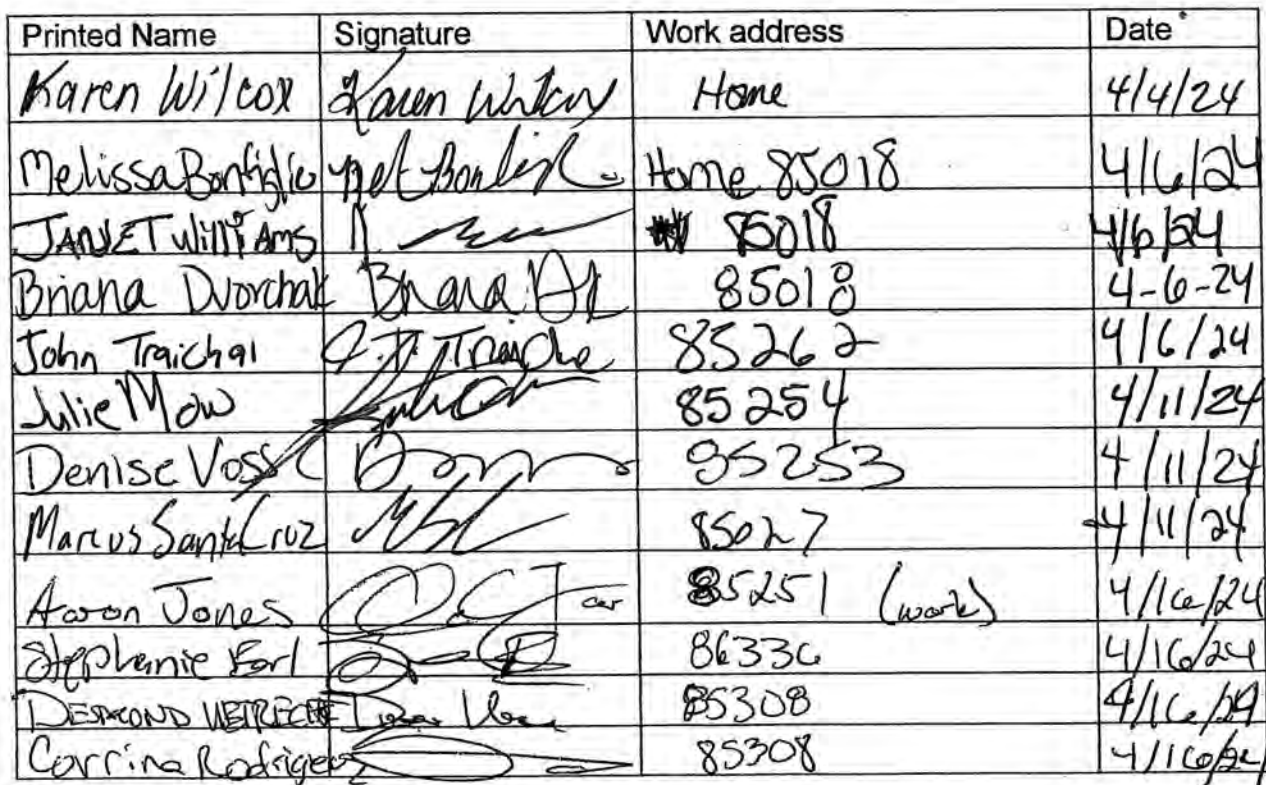 Printed Name Signature Work address Date
Karen Wilcox Karen Wilcox Home 4/4/24
Melissa Bonfiglio Home 85018 4/6/24
JANET WilliAms 85018 4/6/24
Briana Dvorchak Briana 85018 4-6-24
John Traichal J. Traicha 85262 4/6/24
Julie Mow 85254 4/11/24
Denise Voss 85253 4/11/24
Marcus SantaCruz 85027 4/11/24
Aaron Jones 85251 (work) 4/16/24
Stephanie Earl 86336 4/16/24
DESMOND 85308 4/16/24
Corrina Rodriguez 85308 4/16/24